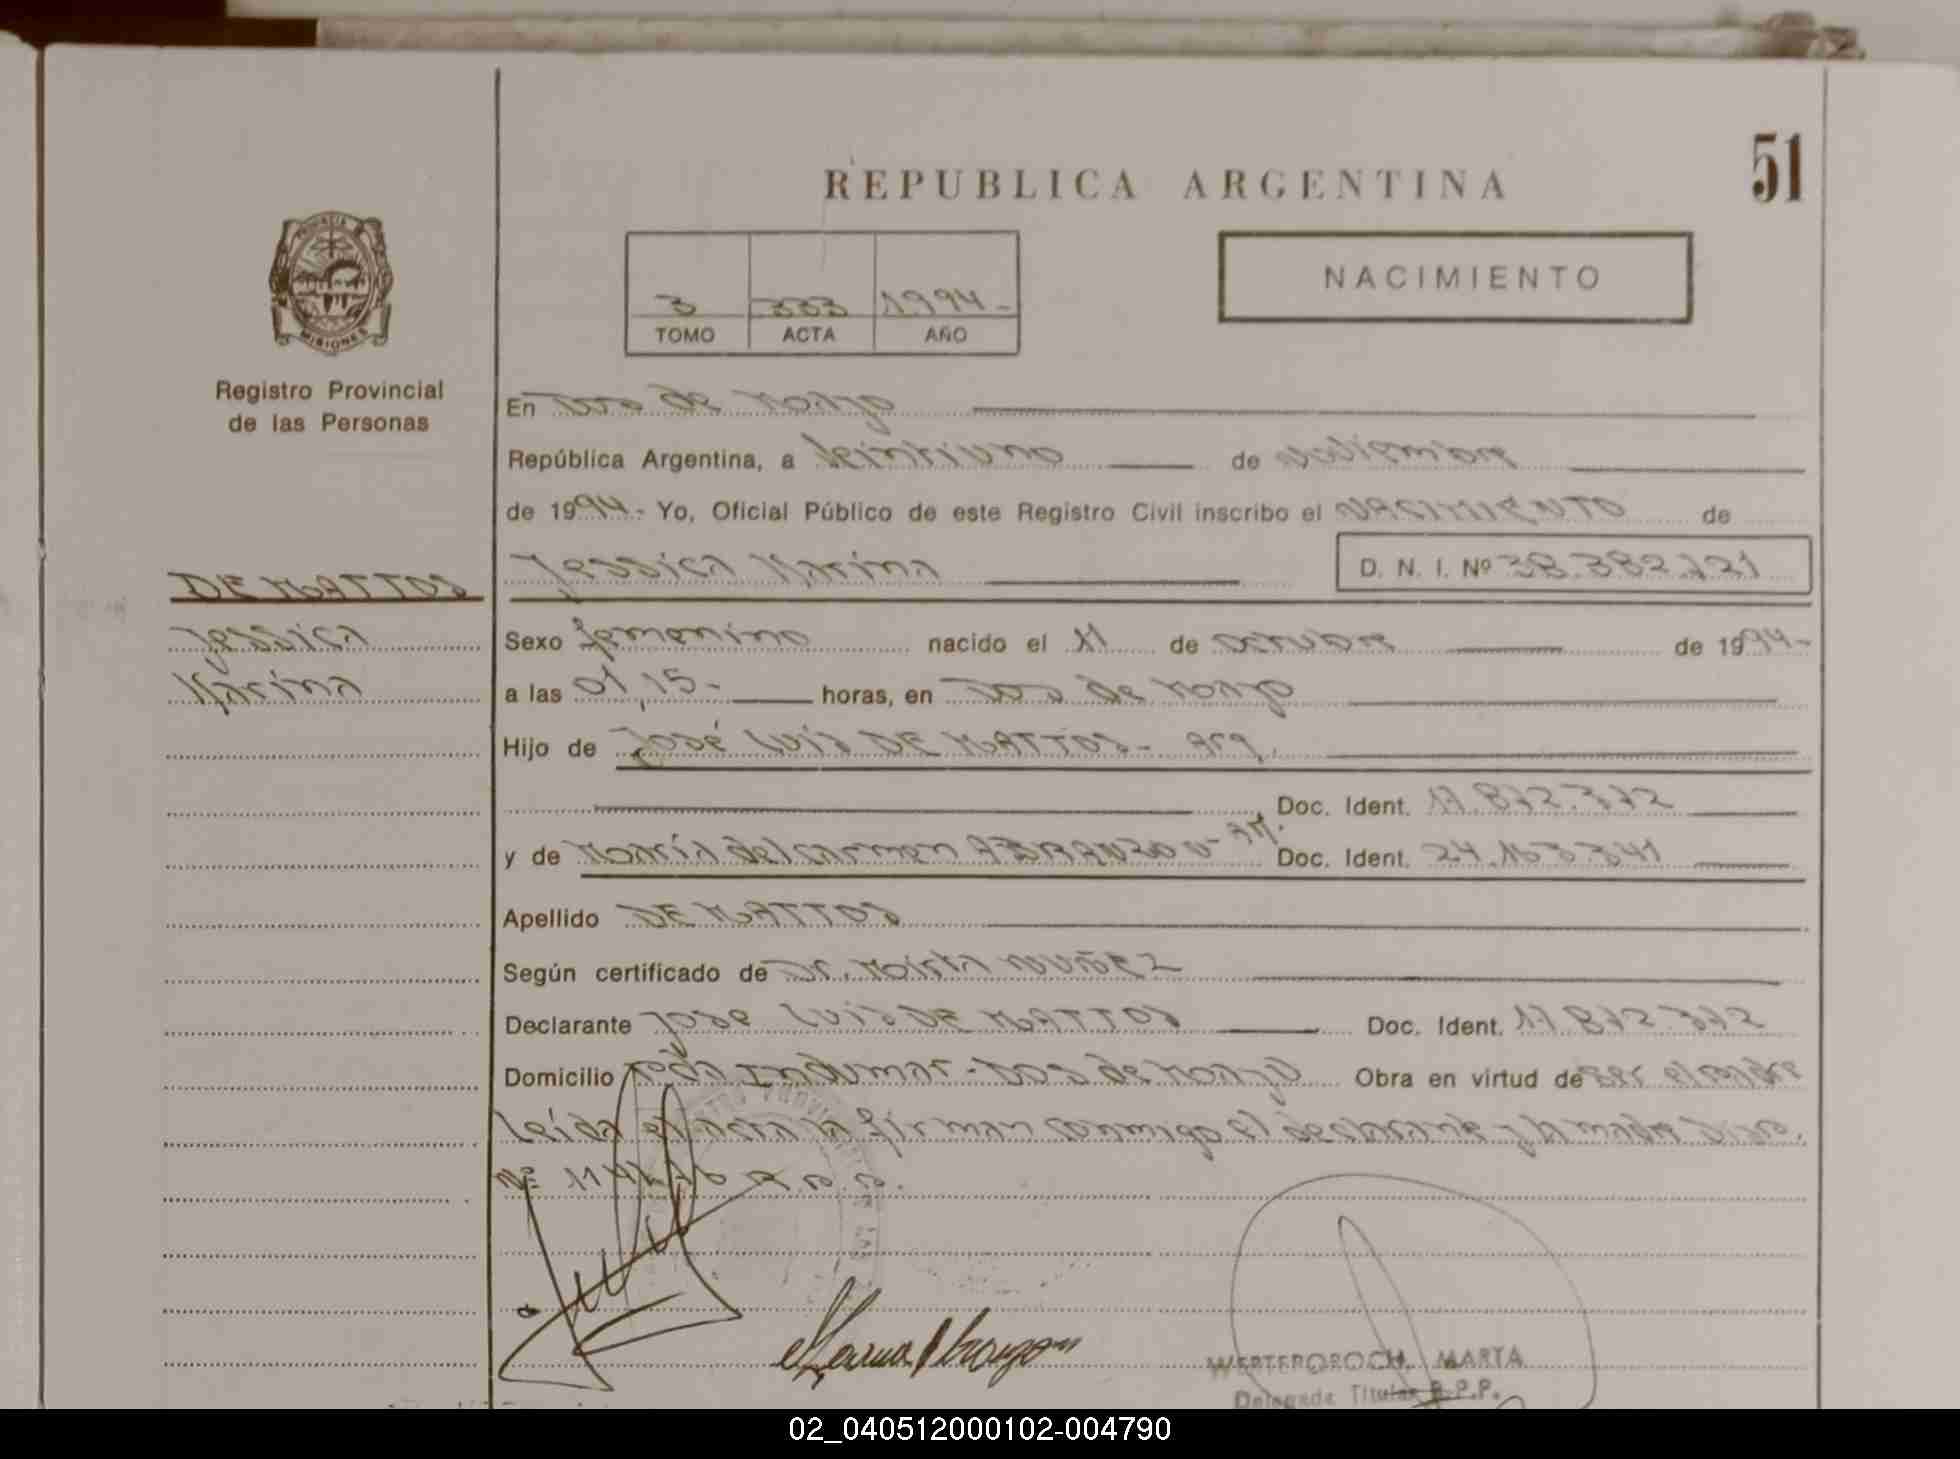 51
REPUBLICA ARGENTINA
PROVINCIA DE
MISIONES
NACIMIENTO
3 333 1994-
TOMO ACTA AÑO
Registro Provincial
de las Personas
En Dos de Mayo
República Argentina, a Veintiuno de Noviembre
de 1994.- Yo, Oficial Público de este Registro Civil inscribo el NACIMIENTO de
Jessica Marina D. N. I. Nº 38.382.721
DE MATTOS
Jessica
Marina
Sexo femenino nacido el 11 de octubre de 1994-
a las 01,15- horas, en Dos de Mayo
Hijo de José Luis DE MATTOS- Arg.
Doc. Ident. 17.872.372
y de María del Carmen Arg. Doc. Ident. 24.163.341
Apellido DE MATTOS
Según certificado de Dr. Mirta NUÑEZ
Declarante José Luis DE MATTOS Doc. Ident. 17.872.372
Domicilio Indumar- Dos de Mayo Obra en virtud de ser el padre
Leída el acta la firman conmigo el declarante y la madre
Nº
WERTEROROCH, MARTA
Delegada Titular R.P.P.
02_040512000102-004790